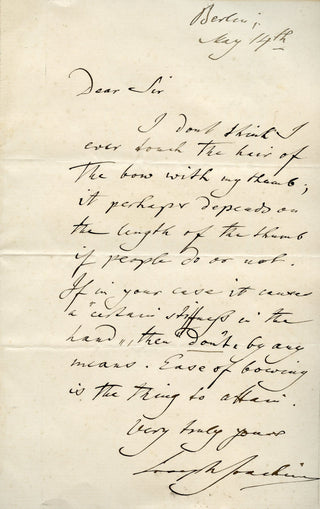 Berlin,
May 14th
Dear Sir
I don't think I
ever touch the hair of
the bow with my thumb;
it perhaps depends on
the length of the thumb
if people do or not.
If in your case it causes
a "certain stiffness in the
hand", then "don't" by any
means. Ease of bowing
is the thing to attain.
Very truly yours
Joseph Joachim